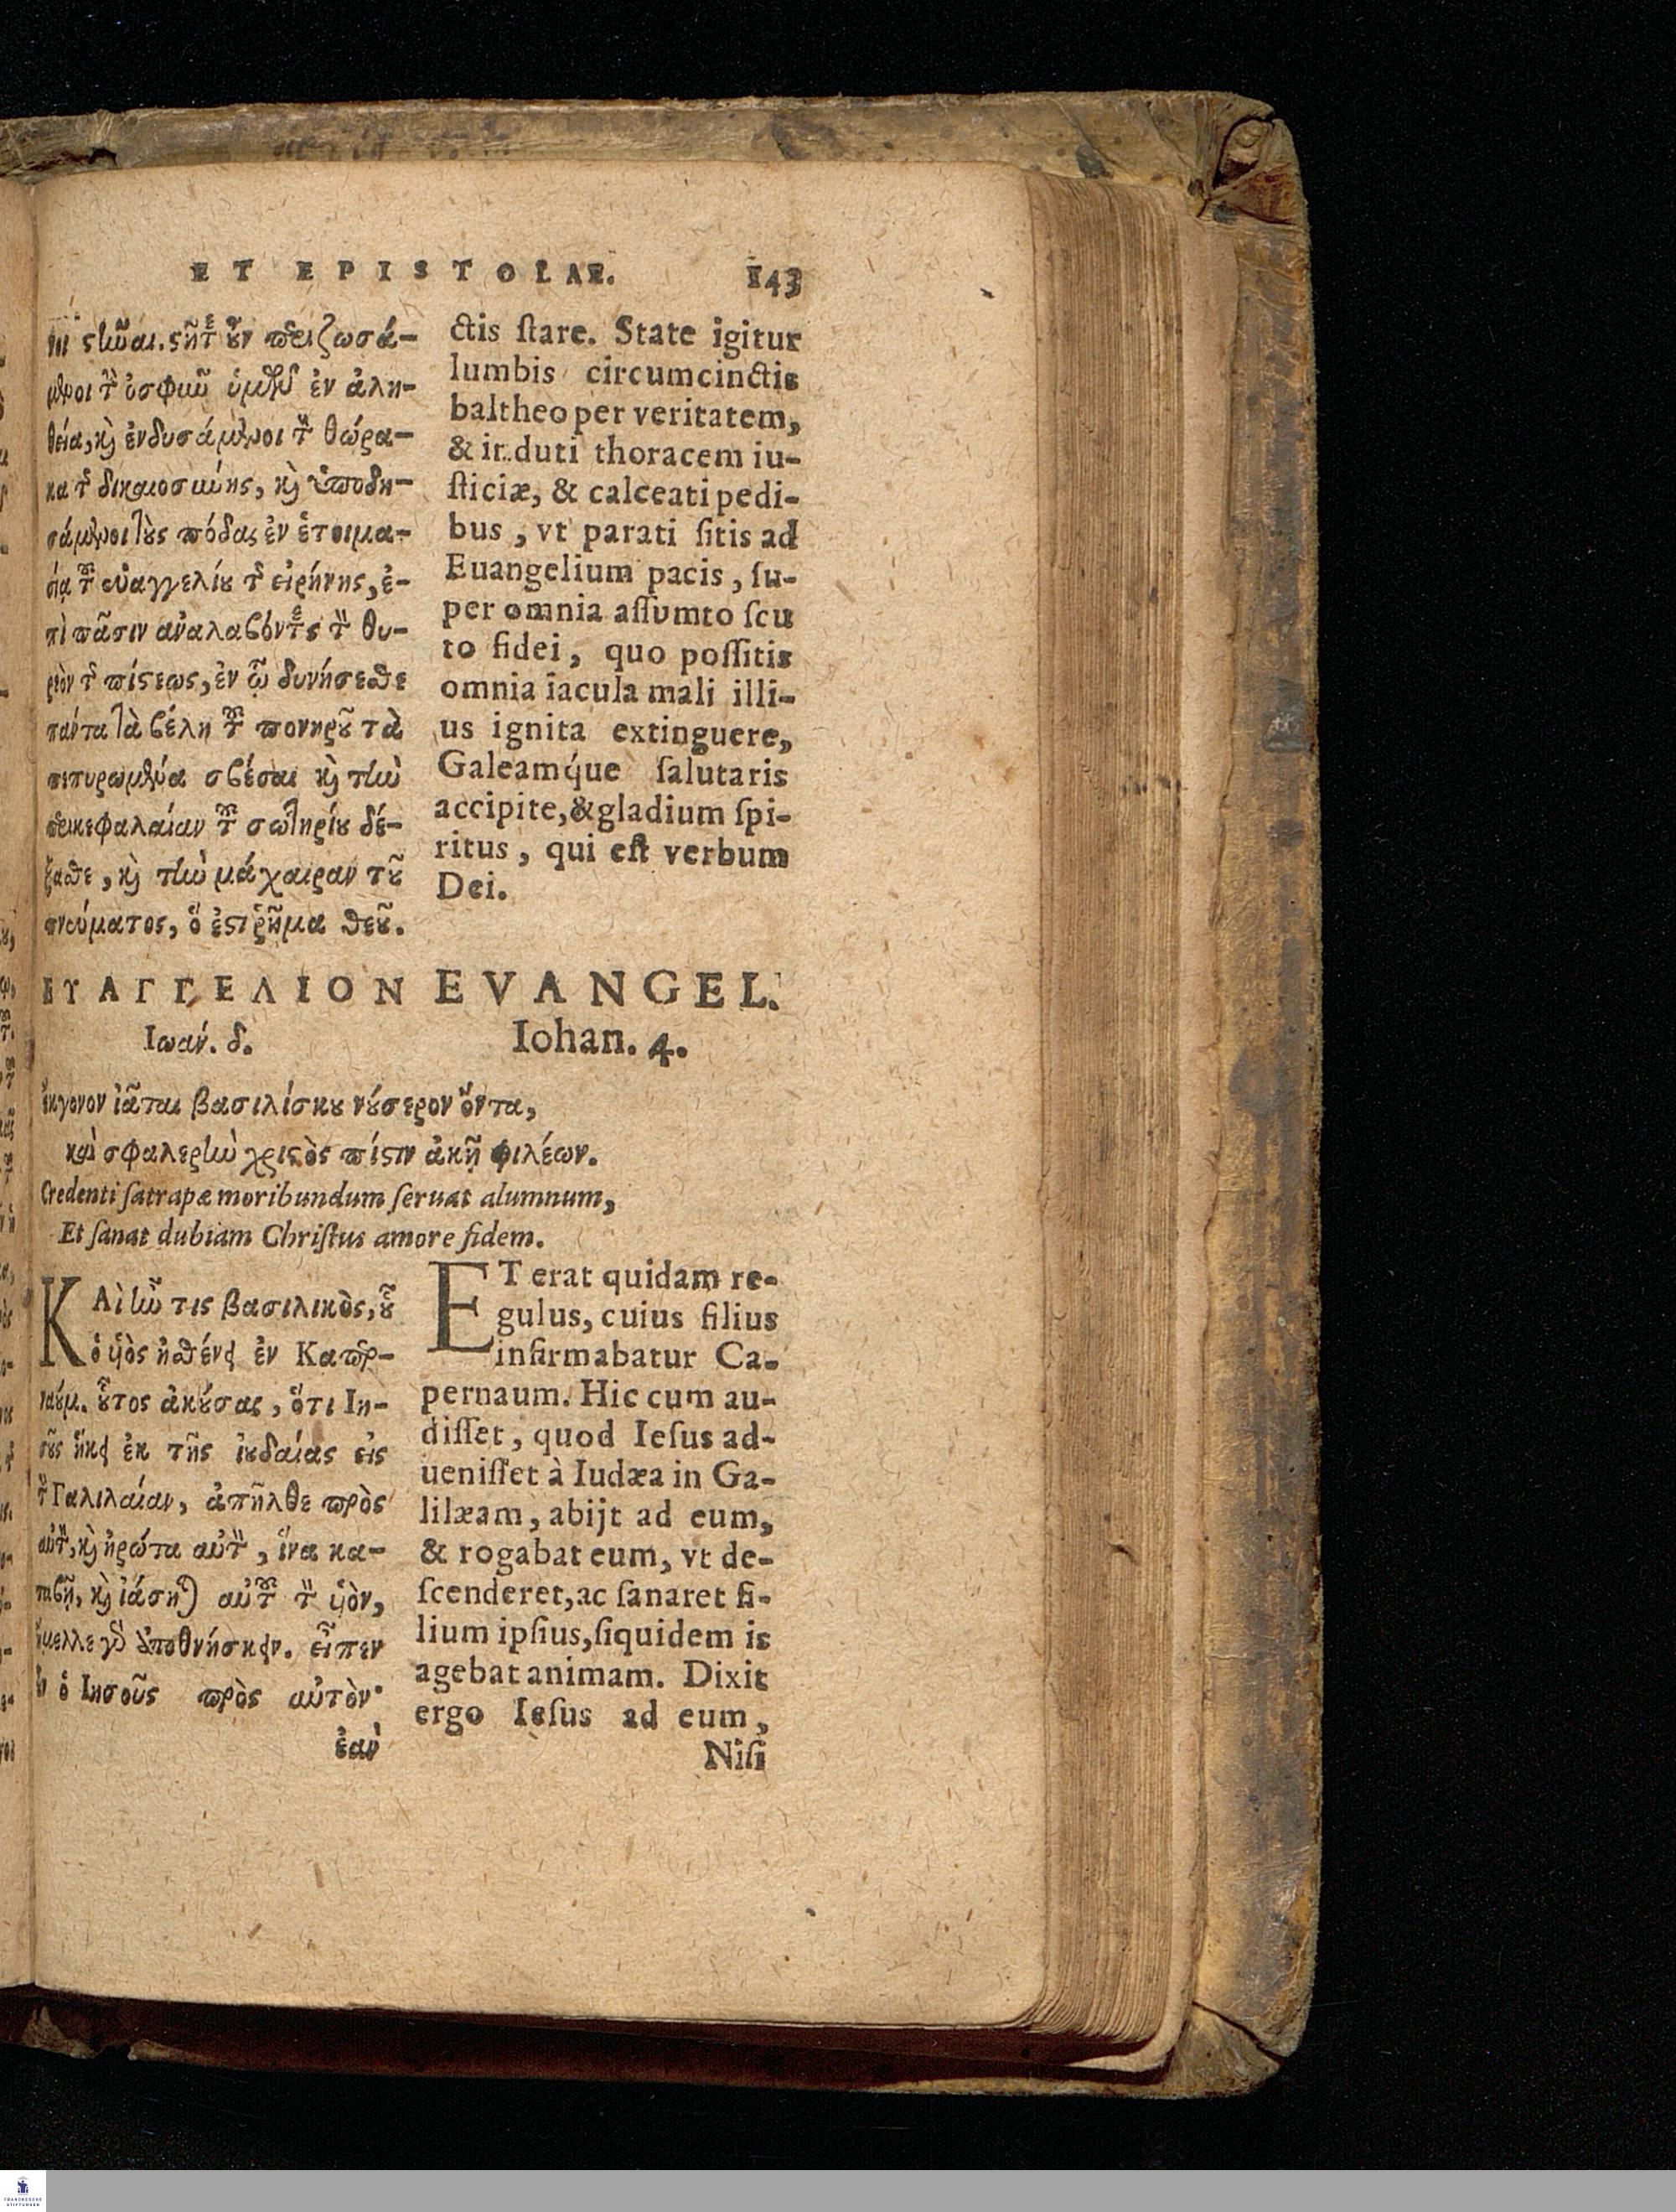 ET EPISTOLAE. 143
ςῆναι. ςῆτε ȣν περιζωσά-
μενοι τὴν ὀσφιὼ ὑμῶν ἐν ἀλη-
θεία, καὶ ἐνδυσάμενοι τὸν θώρα-
κα τῆς δικαιοσιώης, καὶ ὑποδη-
σάμενοι τȣ̀ς πόδας ἐν ἑτοιμα-
σίᾳ τοῦ εὐαγγελίȣ τῆς εἰρήνης, ἐ-
πὶ πᾶσιν ἀναλαβόντες τὸν θυ-
ρεὸν τῆς πίςεως, ἐν ᾧ δυνήσεσθε
πάντα τὰ βέλη τοῦ πονηρȣ͂ τὰ
πεπυρωμένα σβέσαι καὶ τιὼ
περικεφαλαίαν τοῦ σωτηρίȣ δέ-
ξασθε, καὶ τιὼ μάχαιραν τȣ͂
πνεύματος, ὅ ἐςι ῥῆμα θεȣ͂.
ctis ſtare. State igitur
lumbis circumcinctis
baltheo per veritatem,
& induti thoracem iu-
ſticiæ, & calceati pedi-
bus, vt parati ſitis ad
Euangelium pacis, ſu-
per omnia aſſumto ſcu
to fidei, quo poſſitis
omnia iacula mali illi-
us ignita extinguere,
Galeamq́ue ſalutaris
accipite, & gladium ſpi-
ritus, qui eſt verbum
Dei.
ΕΥΑΓΓΕΛΙΟΝ EVANGEL.
Ιωάν. δ. Iohan. 4.
ἔκγονον ἰᾶται βασιλίσκȣ νȣ́σερον ὄντα,
καὶ σφαλεριὼ χριςὸς πίςιν ἀκῆ φιλέων.
Credenti ſatrapæ moribundum ſeruat alumnum,
Et ſanat dubiam Chriſtus amore fidem.
ΚΑὶ ἰῶ τις βασιλικὸς, ȣ͗͂
ὁ ὑιὸς ἠσθένει ἐν Καπερ-
ναȣ́μ. ȣ͗͂τος ἀκȣ́σας, ὅτι Ιη-
σȣ͂ς ἥκει ἐκ τῆς ἰȣδαίας εἰς
τὴν Γαλιλαίαν, ἀπῆλθε πρὸς
αὐτὸν, καὶ ἠρώτα αὐτὸν, ἵνα κα-
ταβῇ, καὶ ἰάσηται αὐτοῦ τὸν ὑιὸν,
ἤμελλε γὰρ ἀποθνήσκειν. εἶπεν
ȣν ὁ Ιησοῦς πρὸς αὐτὸν·
ἐὰν
ET erat quidam re-
gulus, cuius filius
infirmabatur Ca-
pernaum. Hic cum au-
diſſet, quod Ieſus ad-
ueniſſet à Iudæa in Ga-
lilæam, abijt ad eum,
& rogabat eum, vt de-
ſcenderet, ac ſanaret fi-
lium ipſius, ſiquidem is
agebat animam. Dixit
ergo Ieſus ad eum,
Niſi
FRANCKESCHE
STIFTUNGEN